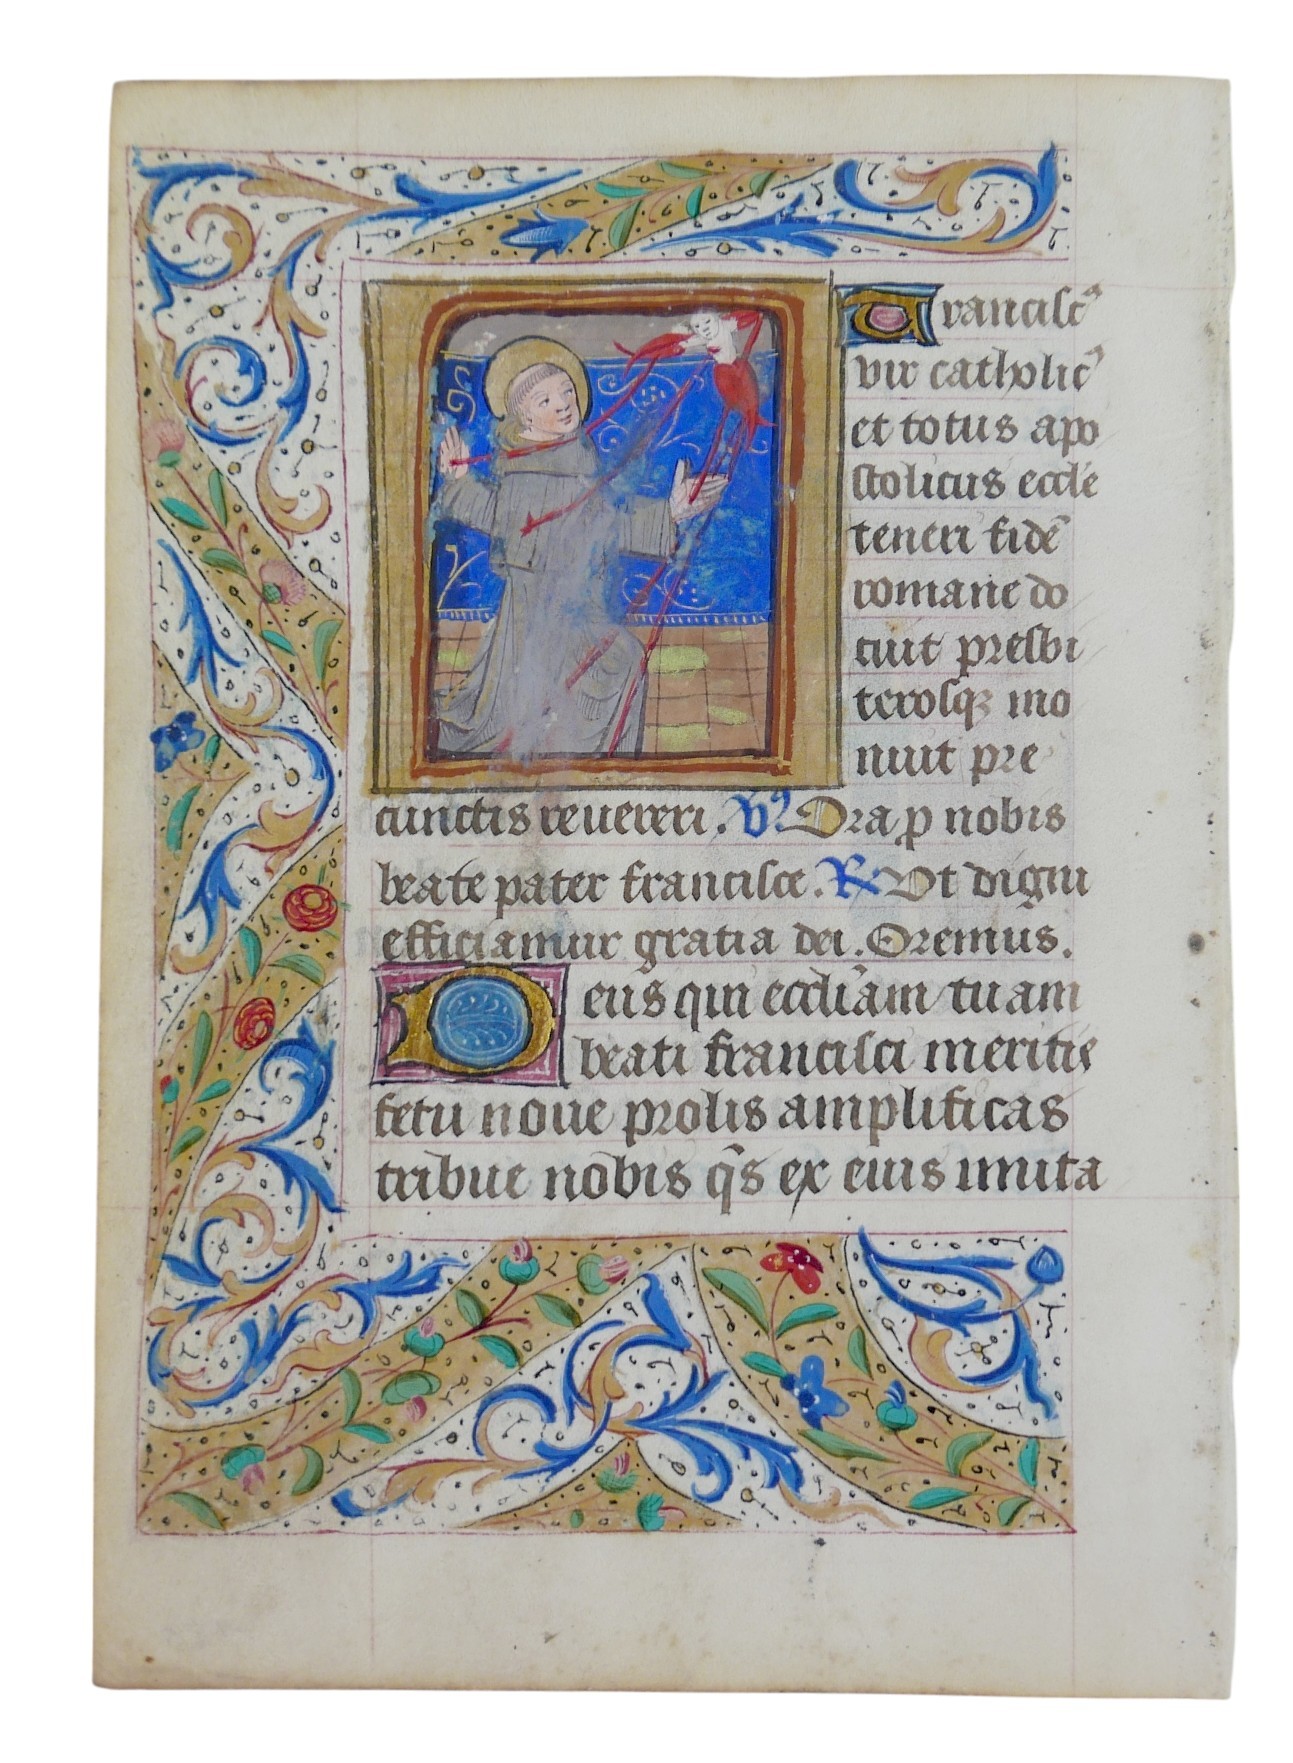 Francisc⁹
vir catholic⁹
et totus apo
stolicus eccl̄e
teneri fidē
romane do
cuit presbi
terosqꝫ mo
nuit pre
cunctis reuereri. V⁹. Ora ꝓ nobis
beate pater francisce. R Vt digni
efficiamur gratia dei. Oremus.
Deus qui eccliā̄m tuam
beati francisci meritis
fetu noue prolis amplificas
tribue nobis q̄s ex eius imita